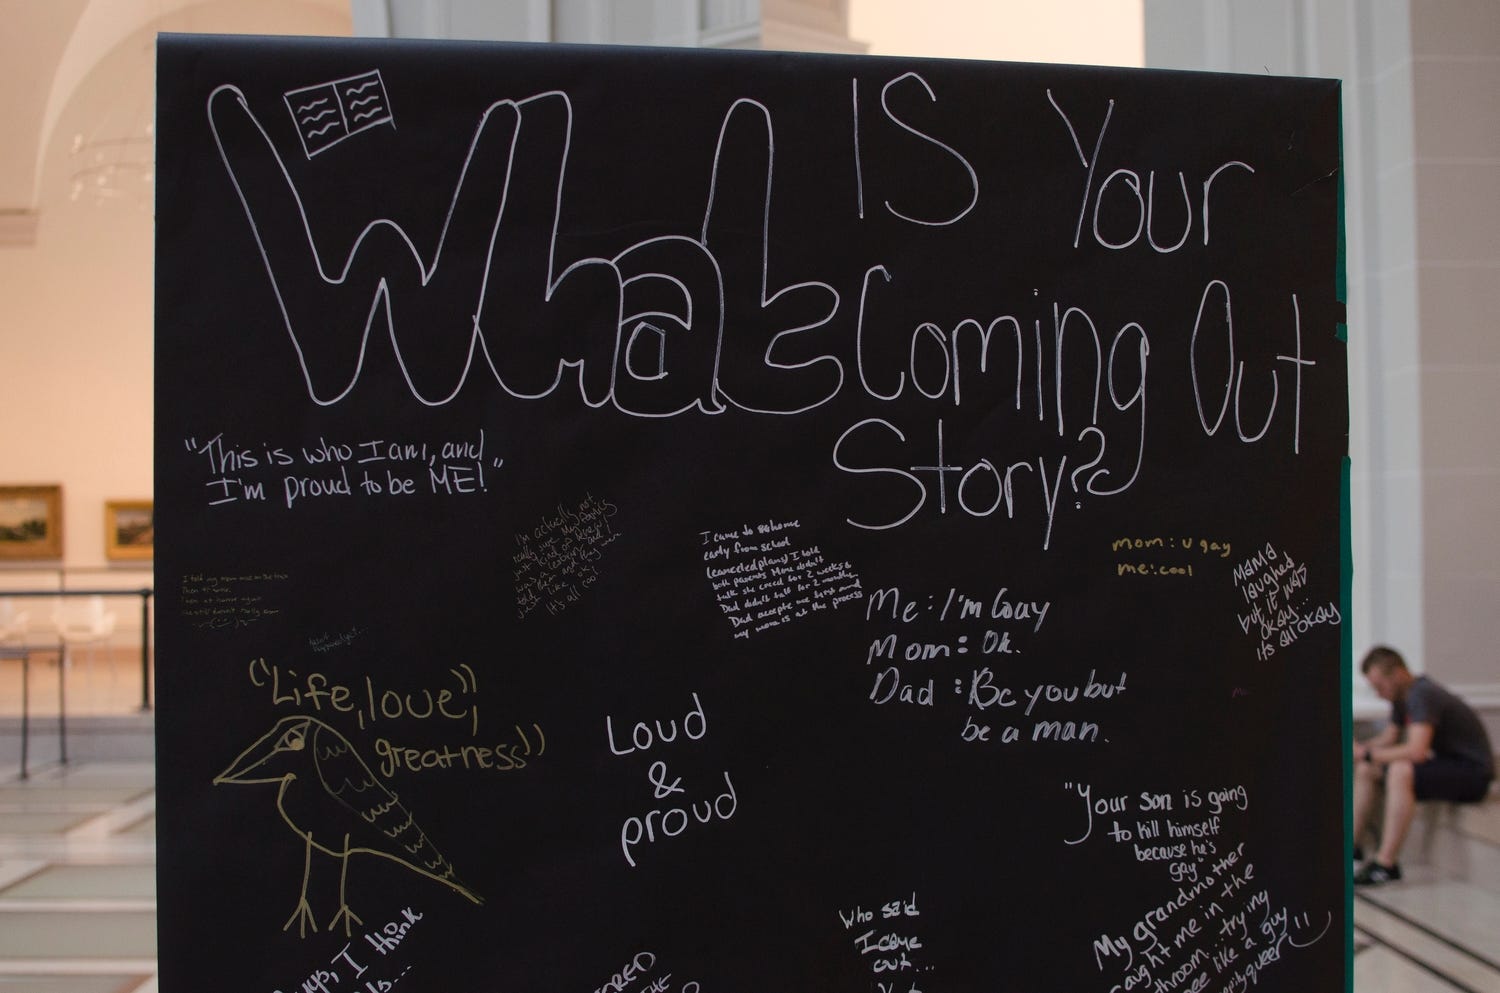 What IS Your
Coming Out
Story?
"This is who I am, and
I'm proud to be ME!"
I'm actually not
really sure. My family
just kind of knew I
was a lesbian and I
told them and they were
just like, ok!
It's all cool
I came to home
early from school
(canceled plans) I told
both parents Mom didn't
talk she cried for 2 weeks &
Dad didn't talk for 2 months
Dad accepts me first and
my mom is at the process
mom: u gay
me: cool
MAMA
laughed
but it was
okay...
its all okay
Me: I'm Gay
Mom: Ok.
Dad: Be you but
be a man.
("Life, love",
greatness"))
Loud
&
proud
"Your son is going
to kill himself
because he's
gay"
My grandmother
caught me in the
throom... trying
pee like a guy
queer
Who said
I came
out...
guys, I think
THE